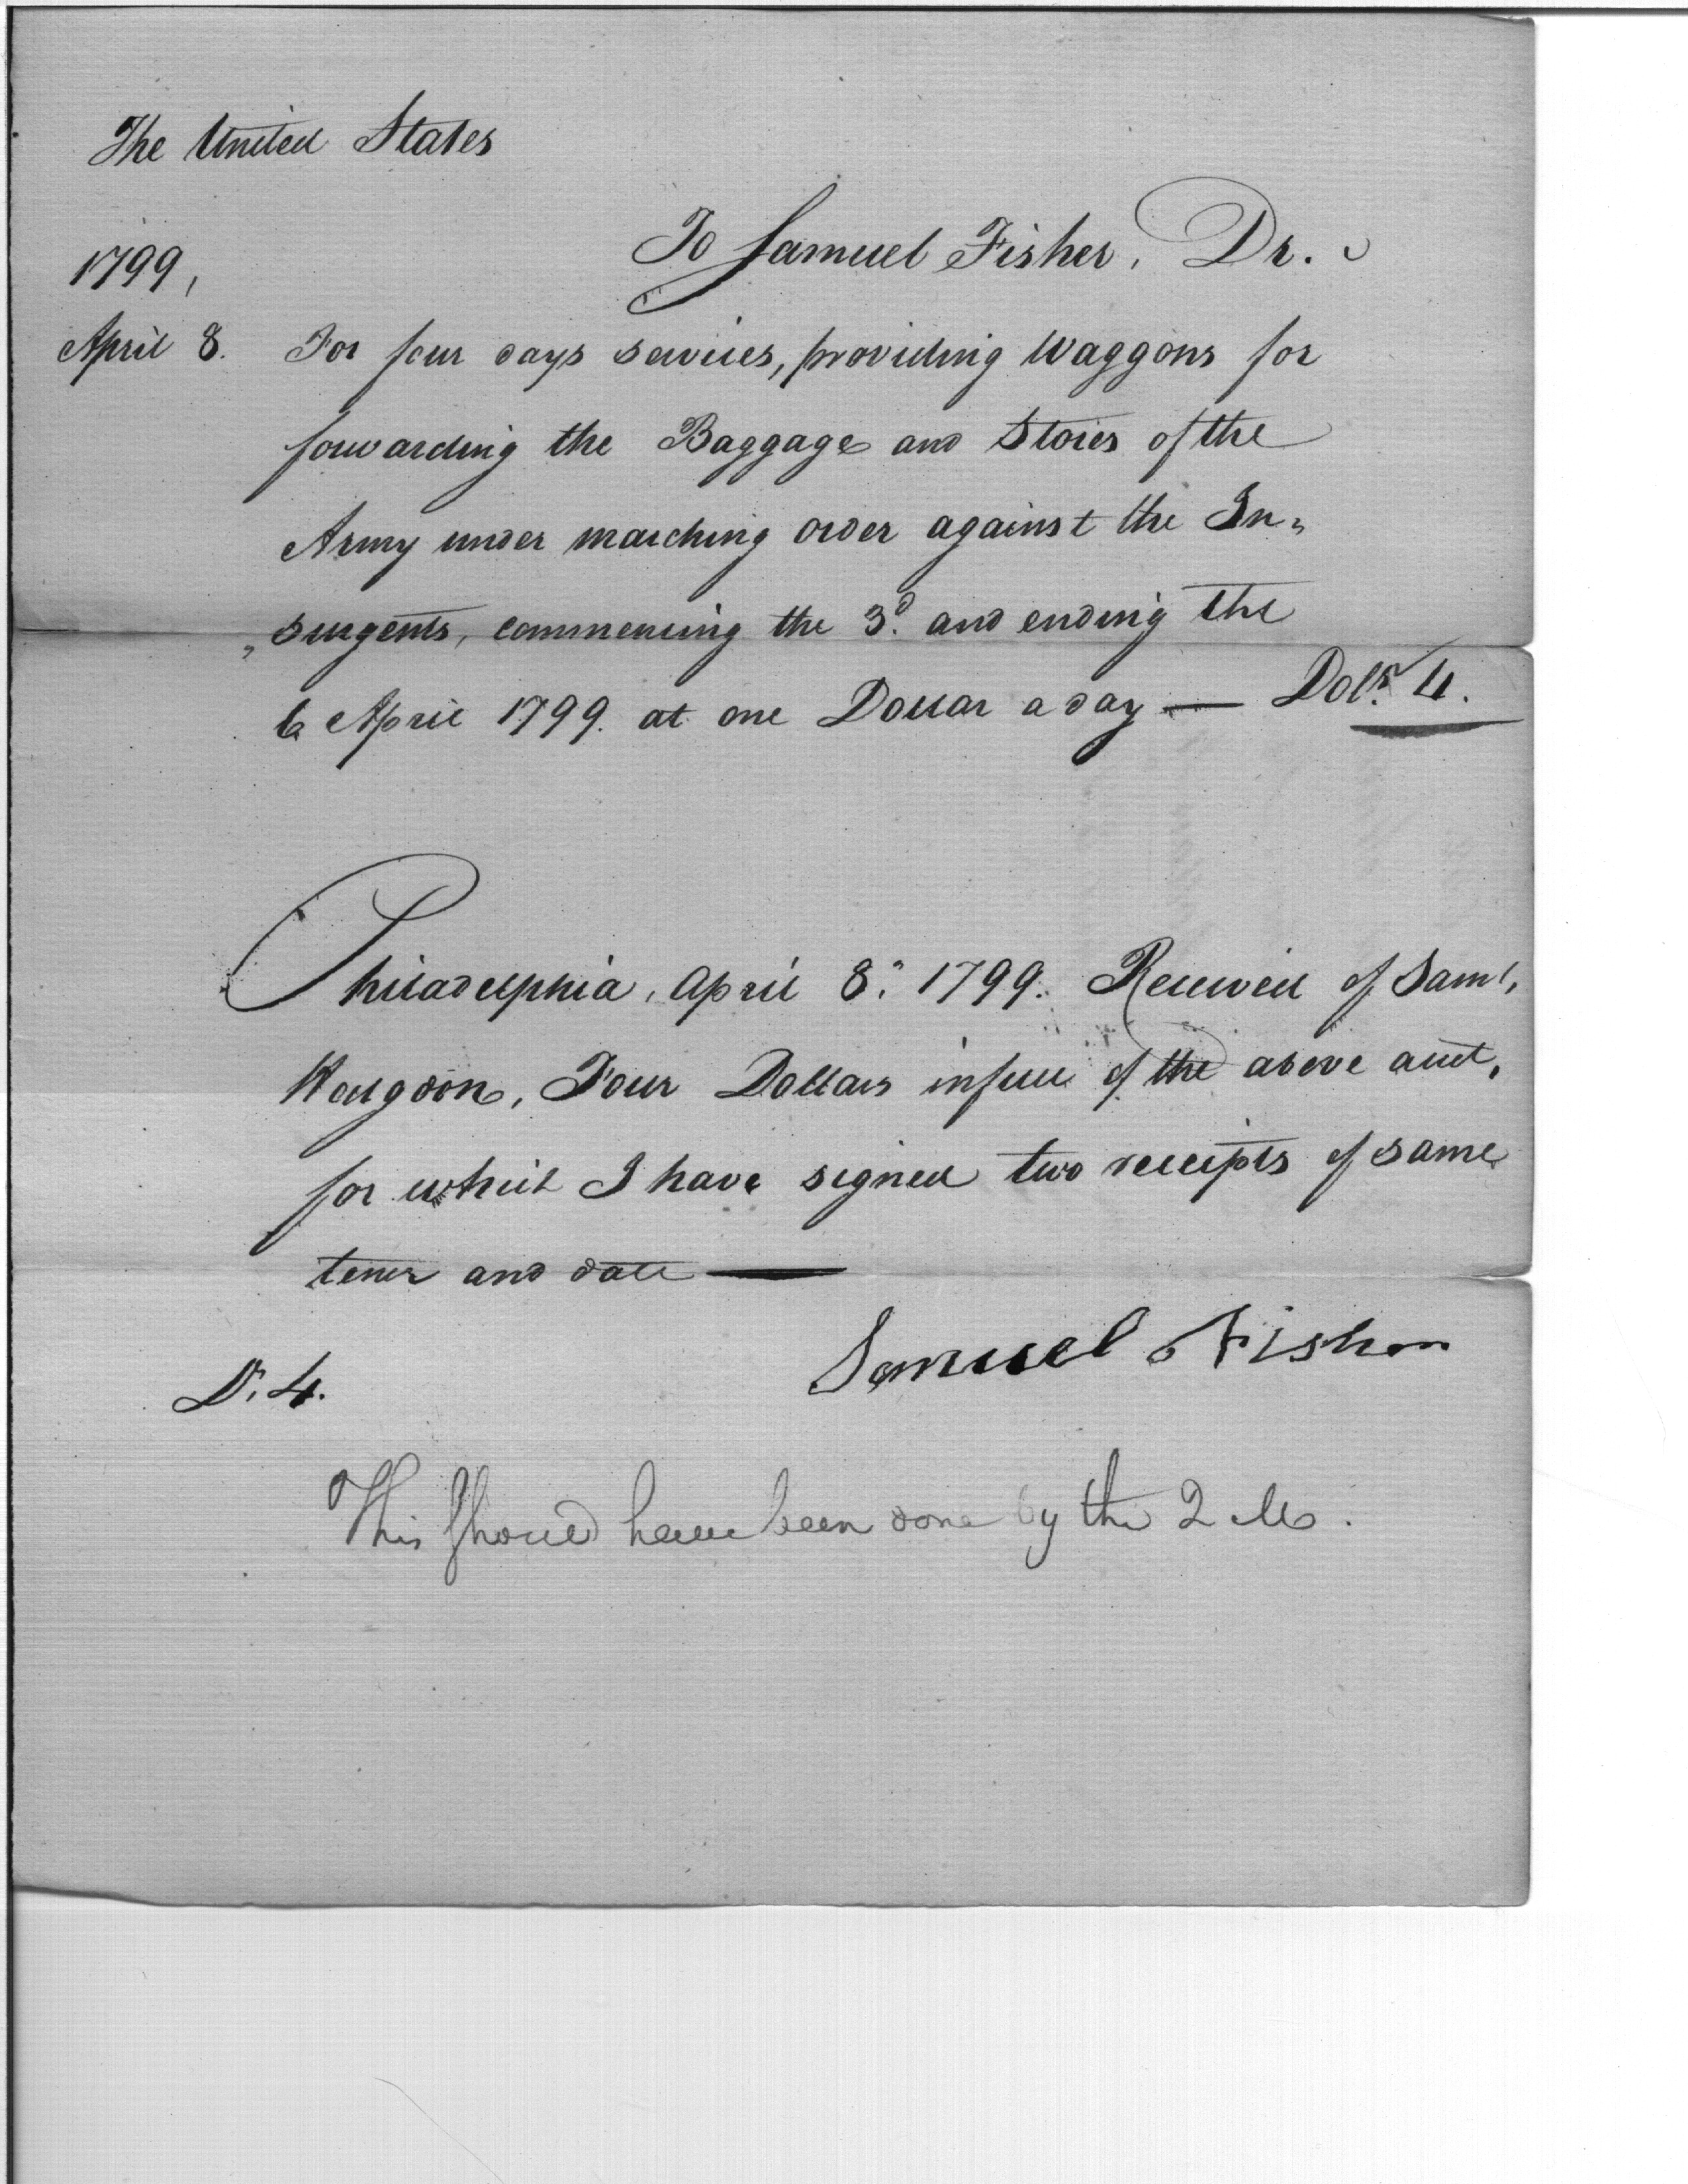 The United States
To Samuel Fisher, Dr.
1799,
April 8. For four days services, providing Waggons for
forwarding the Baggage and Stores of the
Army under marching order against the In„
„surgents, commencing the 3d. and ending the
6 April 1799. at one Dollar a day — Dols. 4.
Philadelphia, April 8. 1799. Received of Saml.
Hodgdon, Four Dollars in full of the above acct,
for which I have signed two receipts of same
tenor and date —
Samuel Fisher
D. 4.
This should have been done by the Q M.